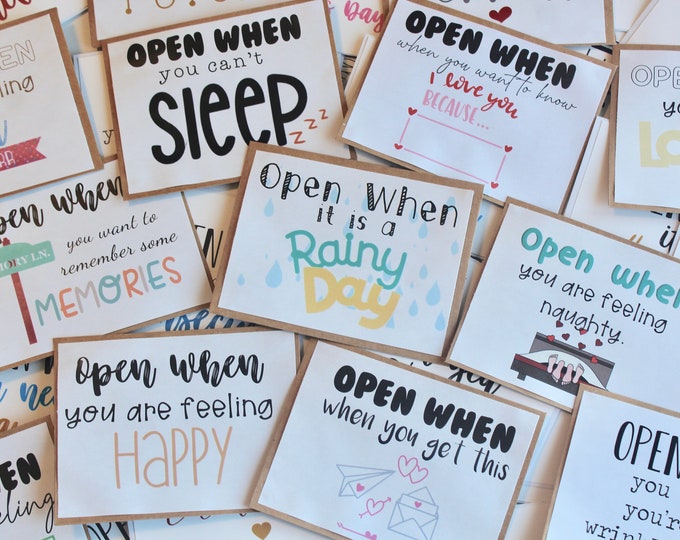 OPEN WHEN
you can't
SLEEP
zzz
OPEN WHEN
when you want to know
I love you
BECAUSE...
Open When
it is a
Rainy
Day
open when
you want to
remember some
MEMORIES
MORY LN.
open when
you are feeling
naughty.
open when
you are feeling
HAPPY
OPEN WHEN
when you get this
OPEN
you
you're
wrink
OPEN
yo
LO
PEN
ling
open
feeling
Day